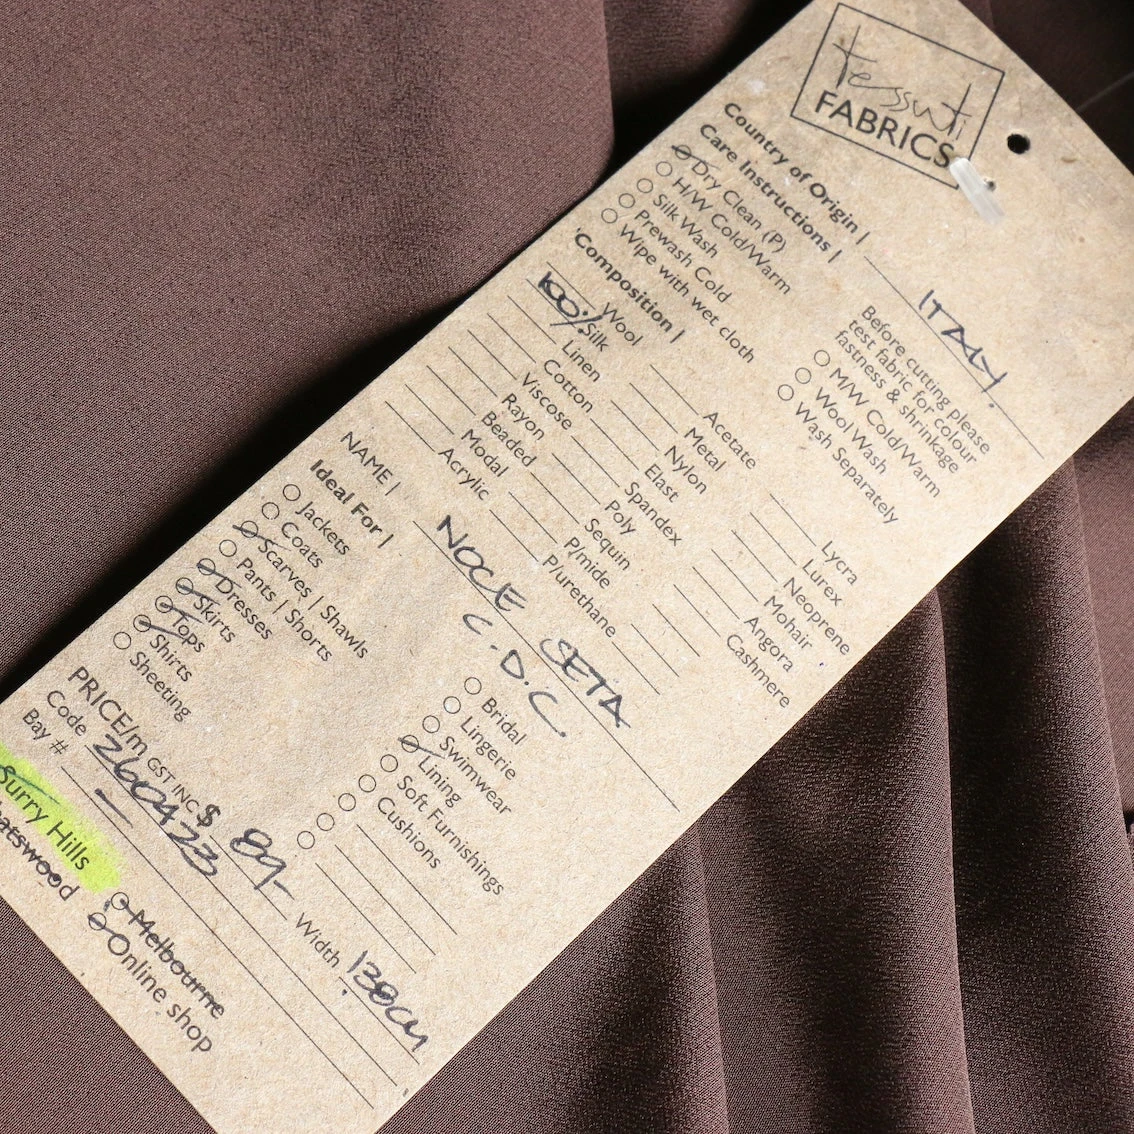 tessuti
FABRICS
Country of Origin | ITALY.
Care Instructions |
Dry Clean (P)
H/W Cold/Warm
Silk Wash
Prewash Cold
Wipe with wet cloth
Before cutting please
test fabric for colour
fastness & shrinkage
M/W Cold/Warm
Wool Wash
Wash Separately
Composition |
Wool
100% Silk
Linen
Cotton
Viscose
Rayon
Beaded
Modal
Acrylic
Acetate
Metal
Nylon
Elast
Spandex
Poly
Sequin
P/mide
P/urethane
Lycra
Lurex
Neoprene
Mohair
Angora
Cashmere
NAME | NOCE SETA
C.D.C
Ideal For |
Jackets
Coats
Scarves | Shawls
Pants | Shorts
Dresses
Skirts
Tops
Shirts
Sheeting
Bridal
Lingerie
Swimwear
Lining
Soft Furnishings
Cushions
PRICE/m GST INC $ 89- Width 138cm
Code 260423
Bay # —
Surry Hills
hatswood
Melbourne
Online shop